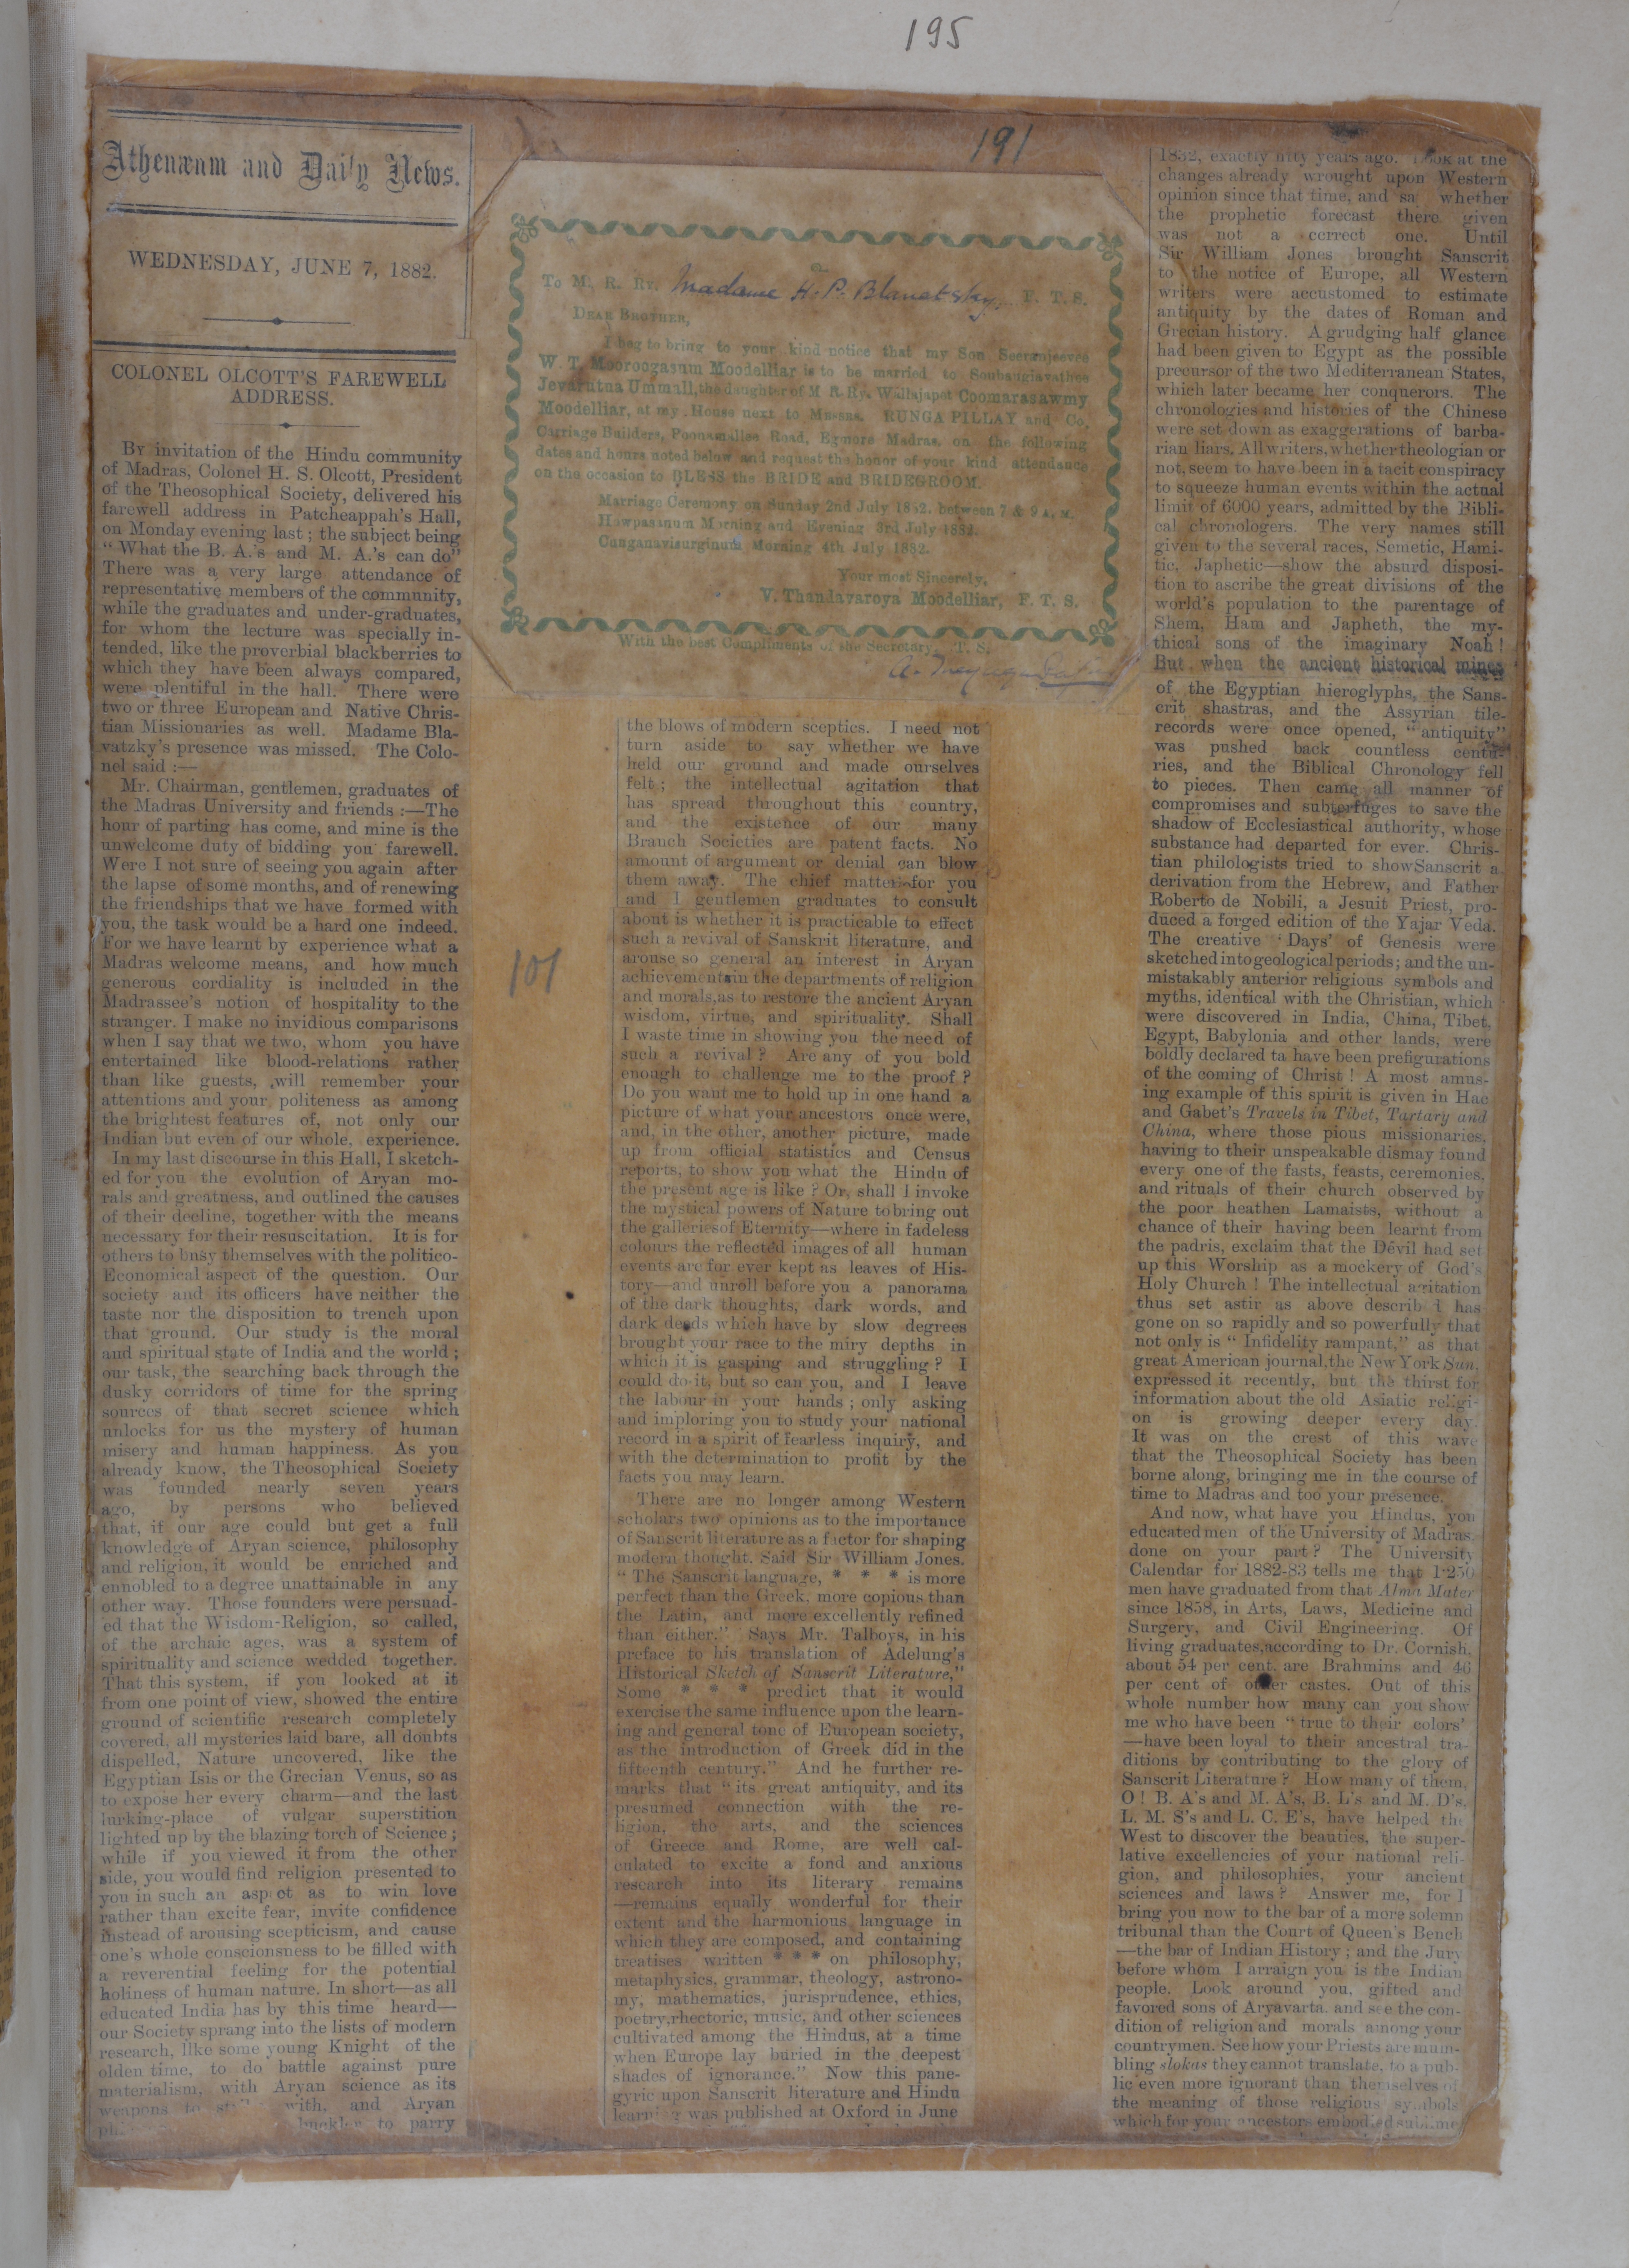 195
191
Athenæum and Daily News.
WEDNESDAY, JUNE 7, 1882.
COLONEL OLCOTT'S FAREWELL
ADDRESS.
By invitation of the Hindu community
of Madras, Colonel H. S. Olcott, President
of the Theosophical Society, delivered his
farewell address in Patcheappah's Hall,
on Monday evening last; the subject being
"What the B. A.'s and M. A.'s can do"
There was a very large attendance of
representative members of the community,
while the graduates and under-graduates,
for whom the lecture was specially in-
tended, like the proverbial blackberries to
which they have been always compared,
were plentiful in the hall. There were
two or three European and Native Chris-
tian Missionaries as well. Madame Bla-
vatzky's presence was missed. The Colo-
nel said :—
Mr. Chairman, gentlemen, graduates of
the Madras University and friends :—The
hour of parting has come, and mine is the
unwelcome duty of bidding you farewell.
Were I not sure of seeing you again after
the lapse of some months, and of renewing
the friendships that we have formed with
you, the task would be a hard one indeed.
For we have learnt by experience what a
Madras welcome means, and how much
generous cordiality is included in the
Madrassee's notion of hospitality to the
stranger. I make no invidious comparisons
when I say that we two, whom you have
entertained like blood-relations rather
than like guests, will remember your
attentions and your politeness as among
the brightest features of, not only our
Indian but even of our whole, experience.
In my last discourse in this Hall, I sketch-
ed for you the evolution of Aryan mo-
rals and greatness, and outlined the causes
of their decline, together with the means
necessary for their resuscitation. It is for
others to busy themselves with the politico-
Economical aspect of the question. Our
society and its officers have neither the
taste nor the disposition to trench upon
that ground. Our study is the moral
and spiritual state of India and the world;
our task, the searching back through the
dusky corridors of time for the spring
sources of that secret science which
unlocks for us the mystery of human
misery and human happiness. As you
already know, the Theosophical Society
was founded nearly seven years
ago, by persons who believed
that, if our age could but get a full
knowledge of Aryan science, philosophy
and religion, it would be enriched and
ennobled to a degree unattainable in any
other way. Those founders were persuad-
ed that the Wisdom-Religion, so called,
of the archaic ages, was a system of
spirituality and science wedded together.
That this system, if you looked at it
from one point of view, showed the entire
ground of scientific research completely
covered, all mysteries laid bare, all doubts
dispelled, Nature uncovered, like the
Egyptian Isis or the Grecian Venus, so as
to expose her every charm—and the last
lurking-place of vulgar superstition
lighted up by the blazing torch of Science;
while if you viewed it from the other
side, you would find religion presented to
you in such an aspect as to win love
rather than excite fear, invite confidence
instead of arousing scepticism, and cause
one's whole consciousness to be filled with
a reverential feeling for the potential
holiness of human nature. In short—as all
educated India has by this time heard—
our Society sprang into the lists of modern
research, like some young Knight of the
olden time, to do battle against pure
materialism, with Aryan science as its
weapons to with, and Aryan
buckler to parry
To M. R. Ry. Madame H. P. Blavatsky, F. T. S.
DEAR BROTHER,
I beg to bring to your kind notice that my Son Seeranjeevee
W. T. Mooroogasum Moodelliar is to be married to Soubaugiavathee
Jevarutna Ummall, the daughter of M R. Ry. Wallajapet Coomarasawmy
Moodelliar, at my House next to Messrs. RUNGA PILLAY and Co.
Carriage Builders, Poonamallee Road, Egmore Madras, on the following
dates and hours noted below and request the honor of your kind attendance
on the occasion to BLESS the BRIDE and BRIDEGROOM.
Marriage Ceremony on Sunday 2nd July 1882. between 7 & 9 A. M.
Howpasanum Morning and Evening 3rd July 1882.
Cunganavisurginum Morning 4th July 1882.
Your most Sincerely,
V. Thandavaroya Moodelliar, F. T. S.
With the best Compliments of the Secretary, T. S.
101
the blows of modern sceptics. I need not
turn aside to say whether we have
held our ground and made ourselves
felt; the intellectual agitation that
has spread throughout this country,
and the existence of our many
Branch Societies are patent facts. No
amount of argument or denial can blow
them away. The chief matter for you
and I gentlemen graduates to consult
about is whether it is practicable to effect
such a revival of Sanskrit literature, and
arouse so general an interest in Aryan
achievements in the departments of religion
and morals, as to restore the ancient Aryan
wisdom, virtue, and spirituality. Shall
I waste time in showing you the need of
such a revival? Are any of you bold
enough to challenge me to the proof?
Do you want me to hold up in one hand a
picture of what your ancestors once were,
and, in the other, another picture, made
up from official statistics and Census
reports, to show you what the Hindu of
the present age is like? Or, shall I invoke
the mystical powers of Nature to bring out
the galleries of Eternity—where in fadeless
colours the reflected images of all human
events are for ever kept as leaves of His-
tory—and unroll before you a panorama
of the dark thoughts, dark words, and
dark deeds which have by slow degrees
brought your race to the miry depths in
which it is gasping and struggling? I
could do it, but so can you, and I leave
the labour in your hands; only asking
and imploring you to study your national
record in a spirit of fearless inquiry, and
with the determination to profit by the
facts you may learn.
There are no longer among Western
scholars two opinions as to the importance
of Sanscrit literature as a factor for shaping
modern thought. Said Sir William Jones.
"The Sanscrit language, * * * is more
perfect than the Greek, more copious than
the Latin, and more excellently refined
than either." Says Mr. Talboys, in his
preface to his translation of Adelung's
Historical Sketch of Sanscrit Literature,"
Some * * * predict that it would
exercise the same influence upon the learn-
ing and general tone of European society,
as the introduction of Greek did in the
fifteenth century." And he further re-
marks that "its great antiquity, and its
presumed connection with the re-
ligion, the arts, and the sciences
of Greece and Rome, are well cal-
culated to excite a fond and anxious
research into its literary remains
—remains equally wonderful for their
extent and the harmonious language in
which they are composed, and containing
treatises written * * * on philosophy,
metaphysics, grammar, theology, astrono-
my, mathematics, jurisprudence, ethics,
poetry, rhectoric, music, and other sciences
cultivated among the Hindus, at a time
when Europe lay buried in the deepest
shades of ignorance." Now this pane-
gyric upon Sanscrit literature and Hindu
learning was published at Oxford in June
1832, exactly fifty years ago. Look at the
changes already wrought upon Western
opinion since that time, and sa whether
the prophetic forecast there given
was not a correct one. Until
Sir William Jones brought Sanscrit
to the notice of Europe, all Western
writers were accustomed to estimate
antiquity by the dates of Roman and
Grecian history. A grudging half glance
had been given to Egypt as the possible
precursor of the two Mediterranean States,
which later became her conquerors. The
chronologies and histories of the Chinese
were set down as exaggerations of barba-
rian liars. All writers, whether theologian or
not, seem to have been in a tacit conspiracy
to squeeze human events within the actual
limit of 6000 years, admitted by the Bibli-
cal chronologers. The very names still
given to the several races, Semetic, Hami-
tic, Japhetic—show the absurd disposi-
tion to ascribe the great divisions of the
world's population to the parentage of
Shem, Ham and Japheth, the my-
thical sons of the imaginary Noah!
But when the ancient historical mines
of the Egyptian hieroglyphs, the Sans-
crit shastras, and the Assyrian tile-
records were once opened, "antiquity"
was pushed back countless centu-
ries, and the Biblical Chronology fell
to pieces. Then came all manner of
compromises and subterfuges to save the
shadow of Ecclesiastical authority, whose
substance had departed for ever. Chris-
tian philologists tried to show Sanscrit a
derivation from the Hebrew, and Father
Roberto de Nobili, a Jesuit Priest, pro-
duced a forged edition of the Yajar Veda.
The creative 'Days' of Genesis were
sketched into geological periods; and the un-
mistakably anterior religious symbols and
myths, identical with the Christian, which
were discovered in India, China, Tibet,
Egypt, Babylonia and other lands, were
boldly declared ta have been prefigurations
of the coming of Christ! A most amus-
ing example of this spirit is given in Hac
and Gabet's Travels in Tibet, Tartary and
China, where those pious missionaries,
having to their unspeakable dismay found
every one of the fasts, feasts, ceremonies,
and rituals of their church observed by
the poor heathen Lamaists, without a
chance of their having been learnt from
the padris, exclaim that the Devil had set
up this Worship as a mockery of God's
Holy Church! The intellectual agitation
thus set astir as above described has
gone on so rapidly and so powerfully that
not only is "Infidelity rampant," as that
great American journal, the New York Sun,
expressed it recently, but the thirst for
information about the old Asiatic religi-
on is growing deeper every day.
It was on the crest of this wave
that the Theosophical Society has been
borne along, bringing me in the course of
time to Madras and too your presence.
And now, what have you Hindus, you
educated men of the University of Madras,
done on your part? The University
Calendar for 1882-83 tells me that 1250
men have graduated from that Alma Mater
since 1858, in Arts, Laws, Medicine and
Surgery, and Civil Engineering. Of
living graduates, according to Dr. Cornish,
about 54 per cent. are Brahmins and 46
per cent of other castes. Out of this
whole number how many can you show
me who have been "true to their colors'
—have been loyal to their ancestral tra-
ditions by contributing to the glory of
Sanscrit Literature? How many of them,
O! B. A's and M. A's, B. L's and M. D's,
L. M. S's and L. C. E's, have helped the
West to discover the beauties, the super-
lative excellencies of your national reli-
gion, and philosophies, your ancient
sciences and laws? Answer me, for I
bring you now to the bar of a more solemn
tribunal than the Court of Queen's Bench
—the bar of Indian History; and the Jury
before whom I arraign you is the Indian
people. Look around you, gifted and
favored sons of Aryavarta, and see the con-
dition of religion and morals among your
countrymen. See how your Priests are mum-
bling slokas they cannot translate, to a pub-
lic even more ignorant than themselves of
the meaning of those religious symbols
which for your ancestors embodied sublime